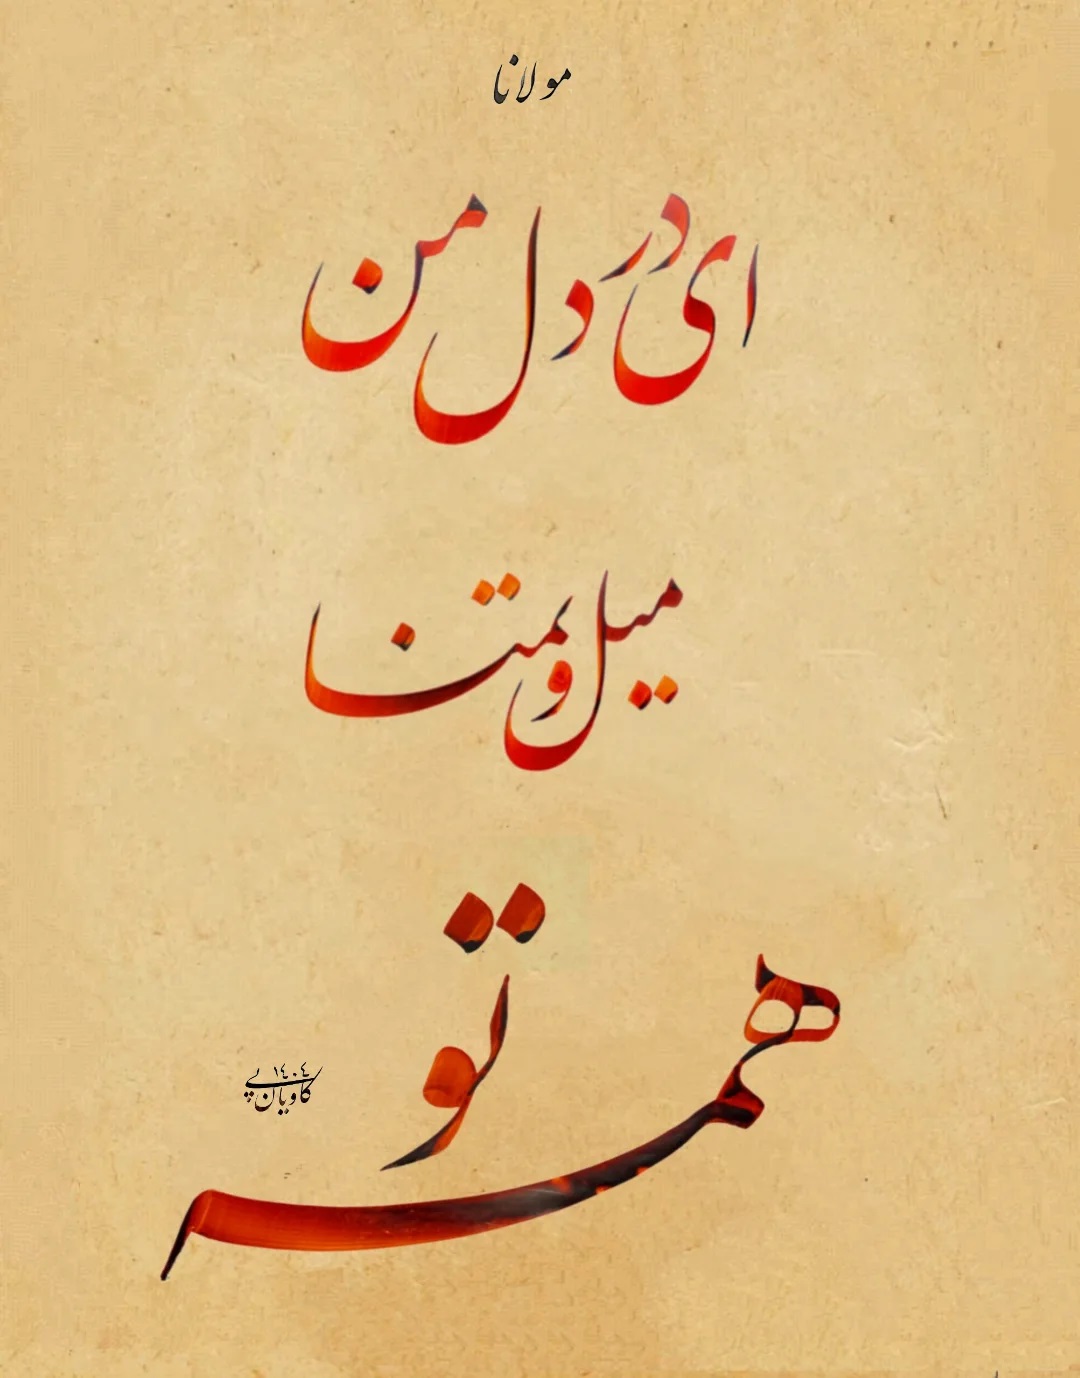 مولانا
ای در دل من
میل و تمنا
همه تو
کاویان پی ۱۴۰۴